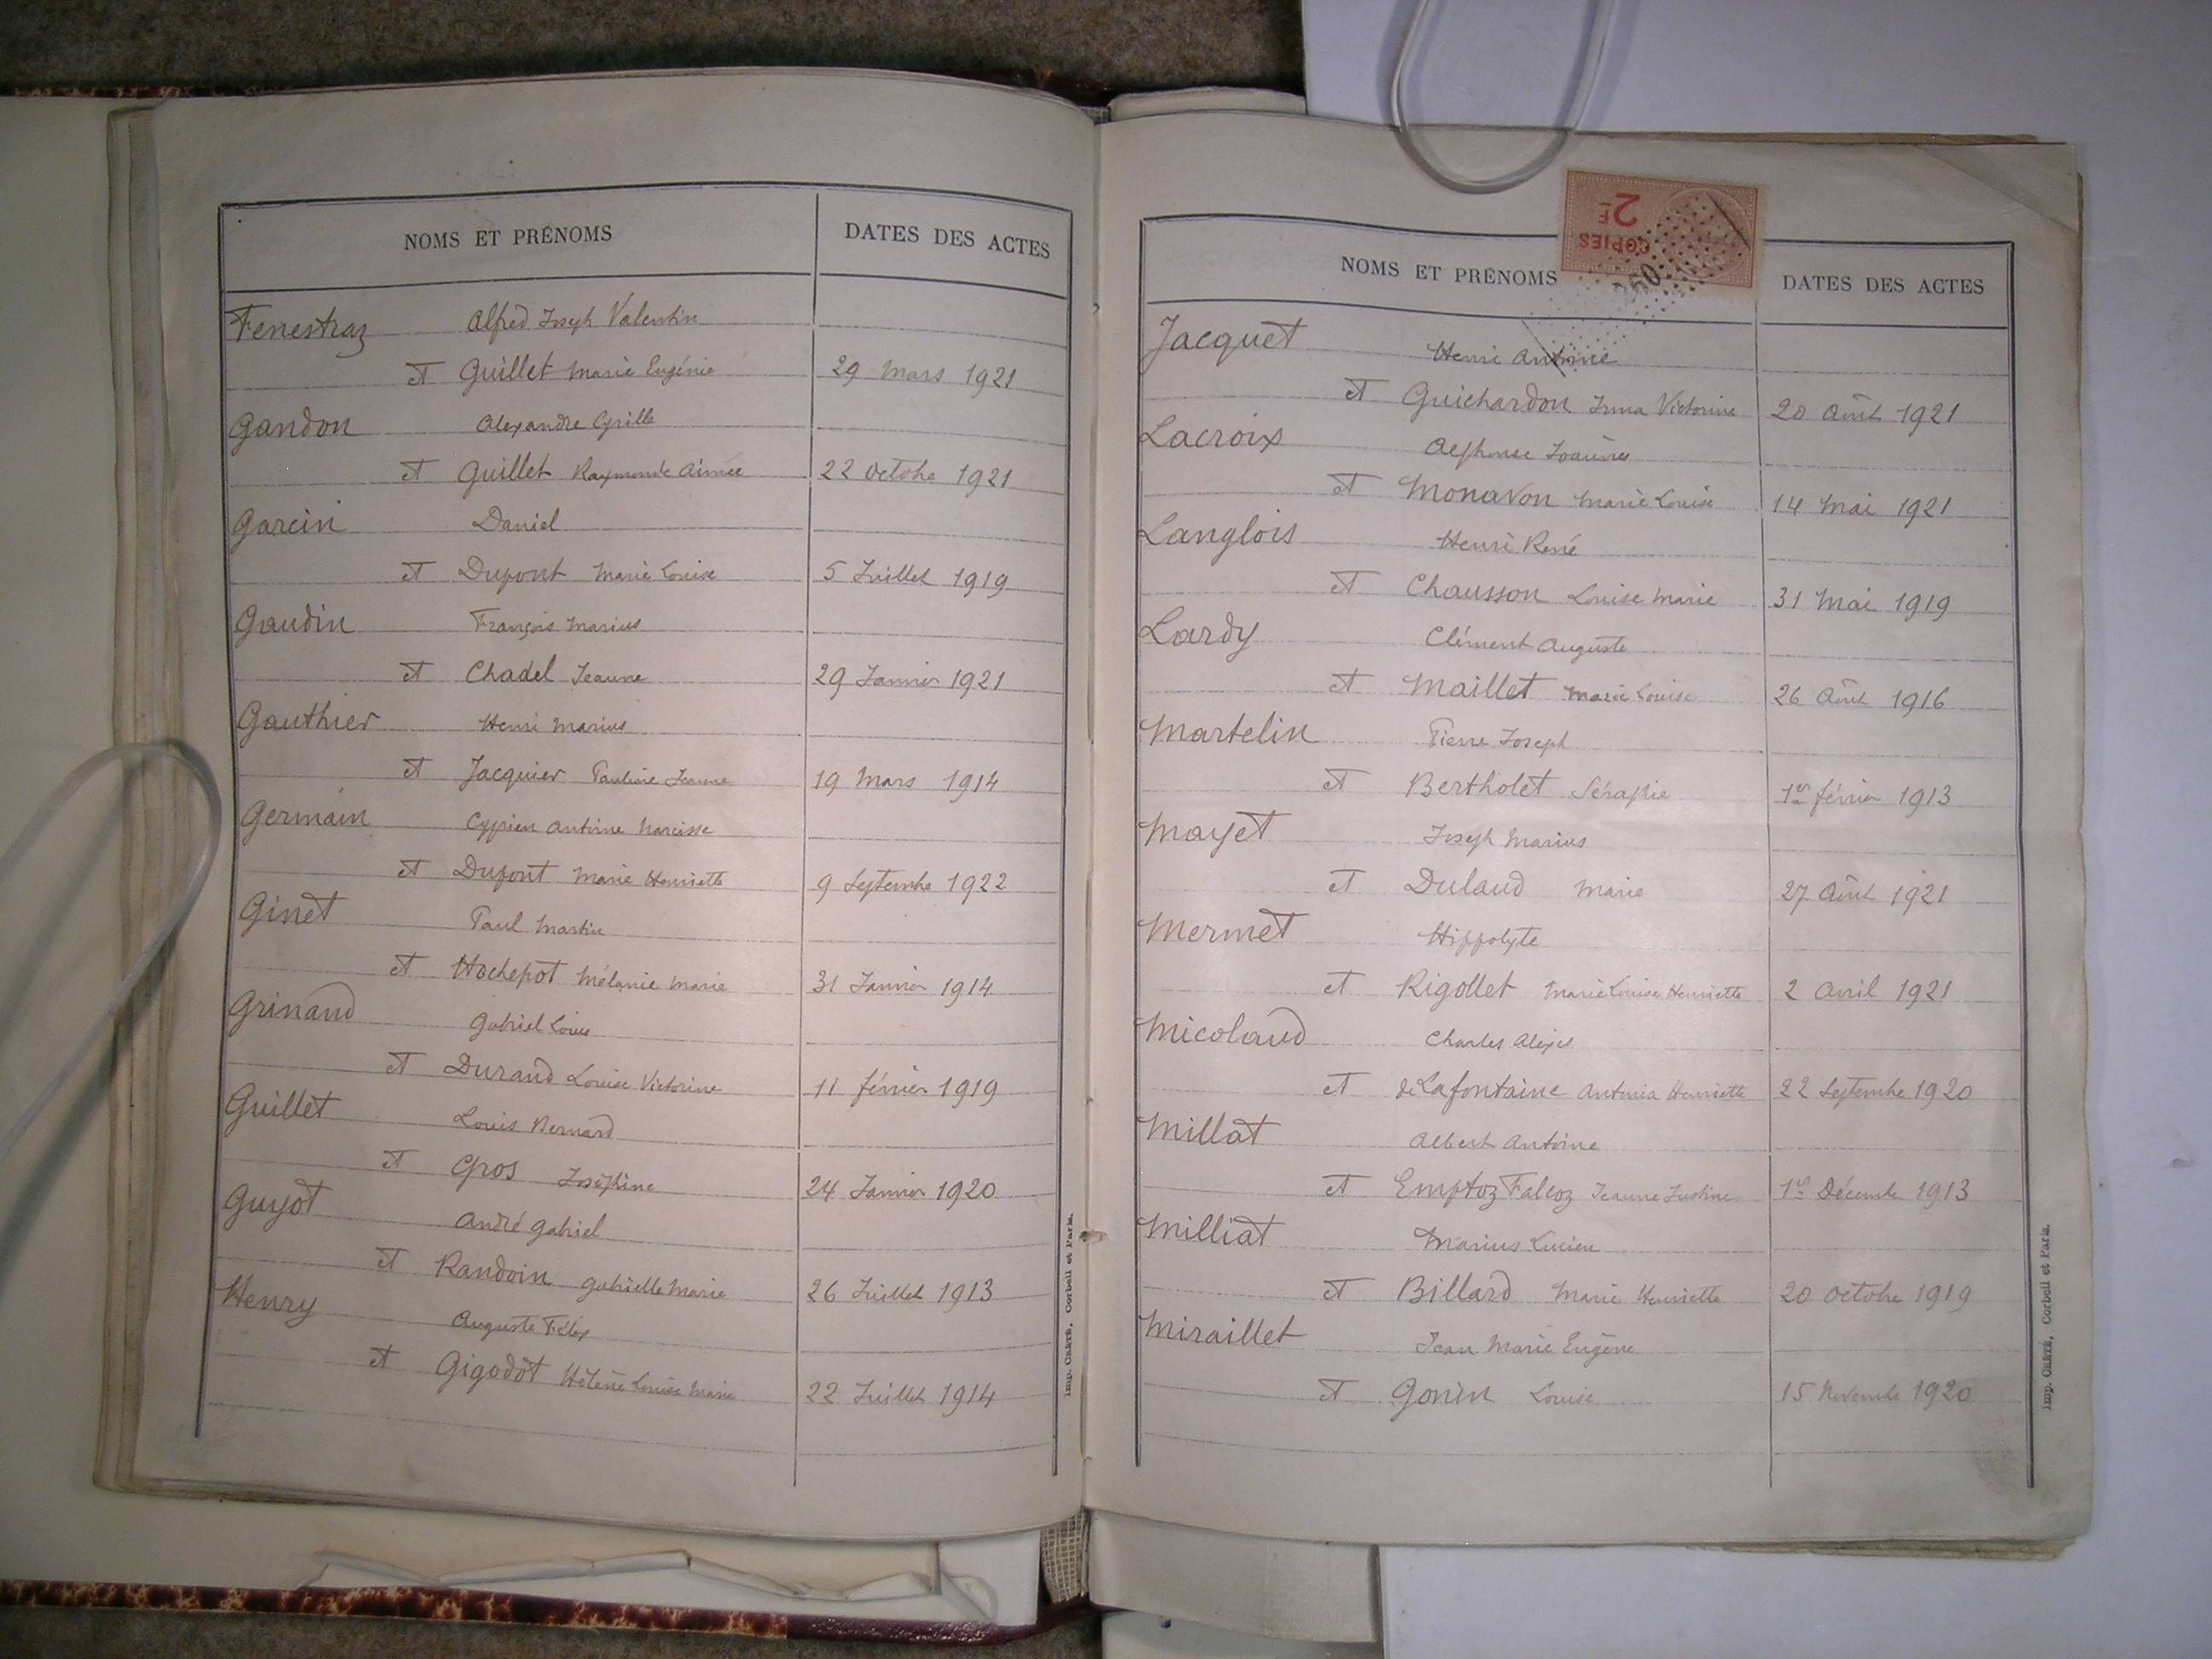 NOMS ET PRÉNOMS DATES DES ACTES
Fenestraz Alfred Joseph Valentin
et Guillet Marie Eugénie 29 Mars 1921
Gandon Alexandre Cyrille
et Guillet Raymonde Aimée 22 Octobre 1921
Garcin Daniel
et Dupont Marie Louise 5 Juillet 1919
Gaudin François Marius
et Chadel Jeanne 29 Janvier 1921
Gauthier Henri Marius
et Jacquier Pauline Jeanne 19 Mars 1914
Germain Cyprien Antoine Narcisse
et Dupont Marie Henriette 9 Septembre 1922
Ginet Paul Martin
et Hochepot Mélanie Marie 31 Janvier 1914
Grinand Gabriel Louis
et Durand Louise Victorine 11 février 1919
Guillet Louis Bernard
et Gros Joséphine 24 Janvier 1920
Guyot André Gabriel
et Randoin Gabrielle Marie 26 Juillet 1913
Henry Auguste Félix
et Gigodot Hélène Louise Marie 22 Juillet 1914
Imp. CRÉTÉ, Corbeil et Paris.
COPIES
2F
NOMS ET PRÉNOMS DATES DES ACTES
Jacquet Henri Antoine
et Guichardon Irma Victorine 20 Août 1921
Lacroix Alphonse Joannès
et Monavon Marie Louise 14 Mai 1921
Langlois Henri René
et Chausson Louise Marie 31 Mai 1919
Lardy Clément Auguste
et Maillet Marie Louise 26 Août 1916
Martelin Pierre Joseph
et Bertholet Séraphie 1er février 1913
Mayet Joseph Marius
et Dulaud Marie 27 Août 1921
Mermet Hippolyte
et Rigollet Marie Louise Henriette 2 Avril 1921
Micolaud Charles Alexis
et de Lafontaine Antonia Henriette 22 Septembre 1920
Millat Albert Antoine
et Emptoz Falcoz Jeanne Justine 1er Décembre 1913
Milliat Marius Lucien
et Billard Marie Henriette 20 Octobre 1919
Miraillet Jean Marie Eugène
et Gonin Louise 15 Novembre 1920
Imp. CRÉTÉ, Corbeil et Paris.